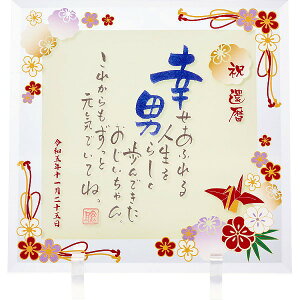 祝還暦
幸せあふれる
人生を
男らしく
歩んできた
おじいちゃん。
これからもずっと
元気でいてね。
令和五年十一月二十五日